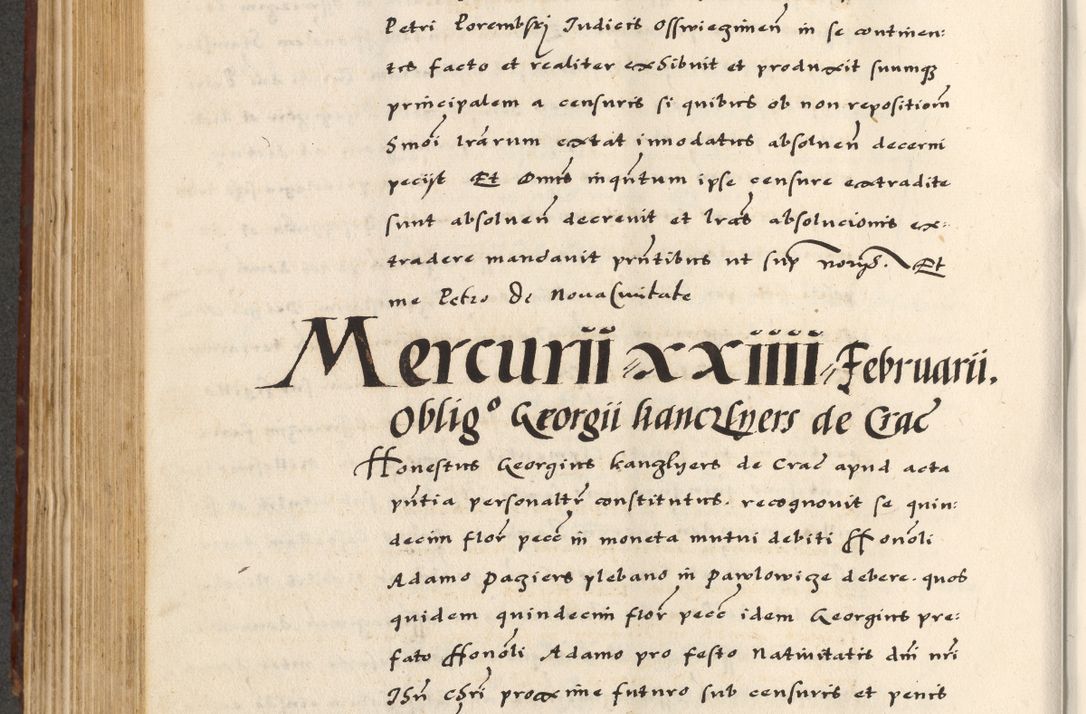 Petri Porembskj Judicis Osswieczimen̄ in se continen:
tes facto et realiter exhibuit et produxit suumqꝫ
principalem a censuris si quibus ob non repositiom̄
Smōi lr̄arum extat innodatus absolven̄ decerni
pecijt Et Dominꝰ inqn̄tum ipse censure extradite
sunt absolven̄ decrevit et lrās absolucionis ex:
tradere mandavit prn̄tibus ut sup̄ Et
me Petro de Nova Civitate
Mercurii xxiiii Februarii.
Obligᵒ Georgii kanczlyers de Crac̄
Honestus Georgius kanczlyers de Crac̄ apud acta
pn̄tia personaltr̄ constitutus. recognovit se quin:
decim flor̄ pecc̄ in moneta mutui debiti Honōli
Adamo Pacziers plebano in Pawlowicze debere. quos
quidem quindecim flor̄ pecc̄ idem Georgius pre:
fato Honōli Adamo pro festo Nativitatis dn̄i nr̄i
Jhū chr̄i proxime futuro sub censuris et penis